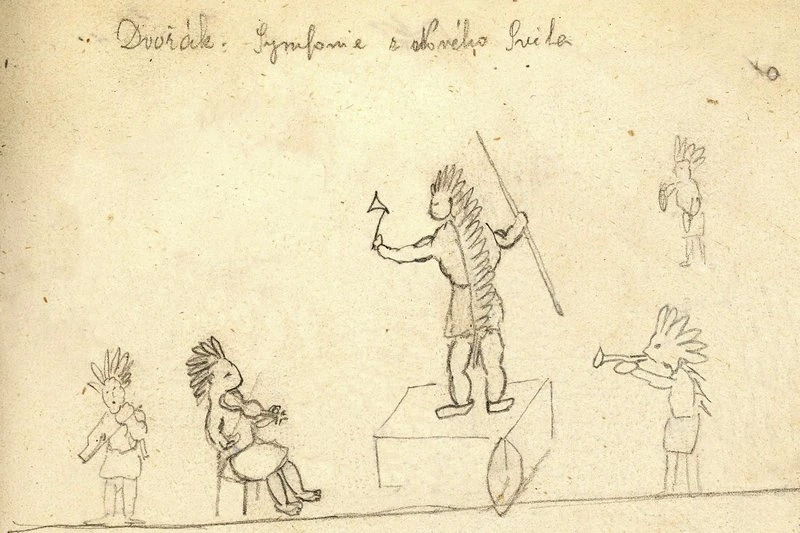 Dvořák: Symfonie z Nového Světa